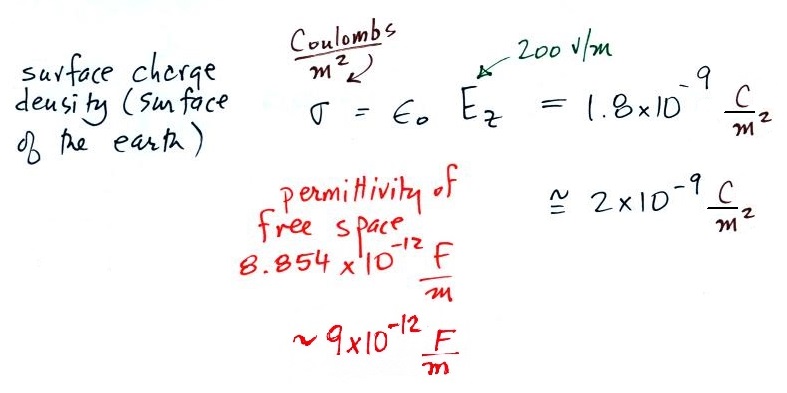 surface charge
density (surface
of the earth)
Coulombs
m²
200 V/m
σ = ϵ₀ E_z = 1.8x10⁻⁹ C/m²
≅ 2x10⁻⁹ C/m²
permittivity of
free space
8.854 x 10⁻¹² F/m
~ 9x10⁻¹² F/m